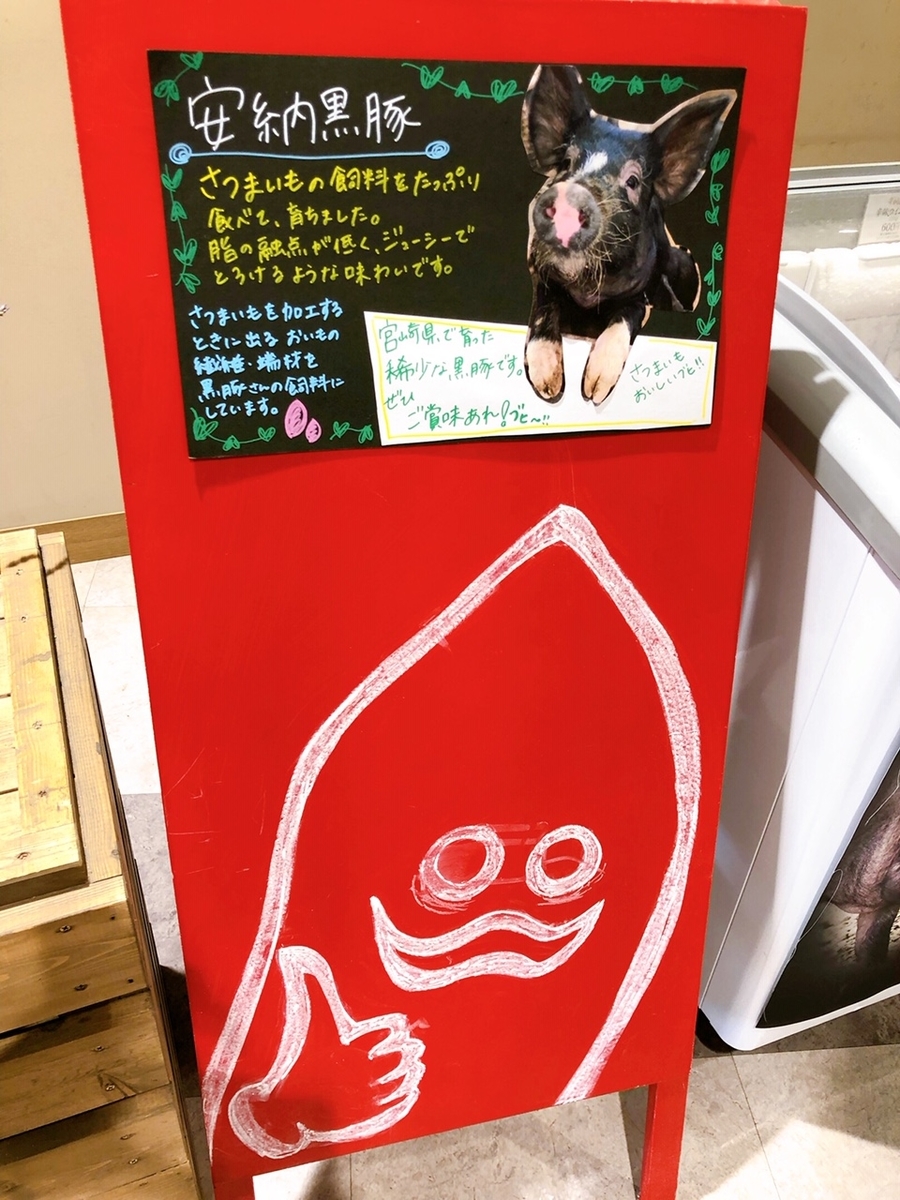 安納黒豚
さつまいもの飼料をたっぷり
食べて、育ちました。
脂の融点が低く、ジューシーで
とろけるような味わいです。
さつまいもを加工する
ときに出る おいもの
繊維・端材を
黒豚さんの飼料に
しています。
宮崎県で育った
稀少な黒豚です。
ぜひ
ご賞味あれ!ブヒ〜!!
さつまいも
おいしいブヒ!!